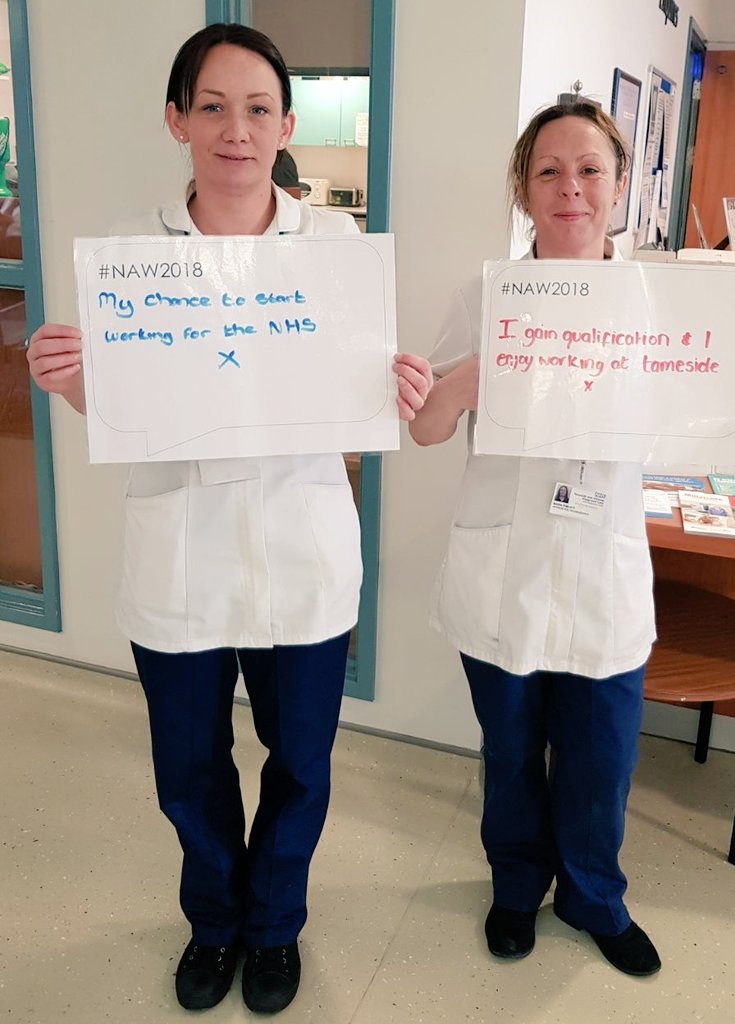 #NAW2018
My chance to start
working for the NHS
x
#NAW2018
I gain qualification & I
enjoy working at tameside
x